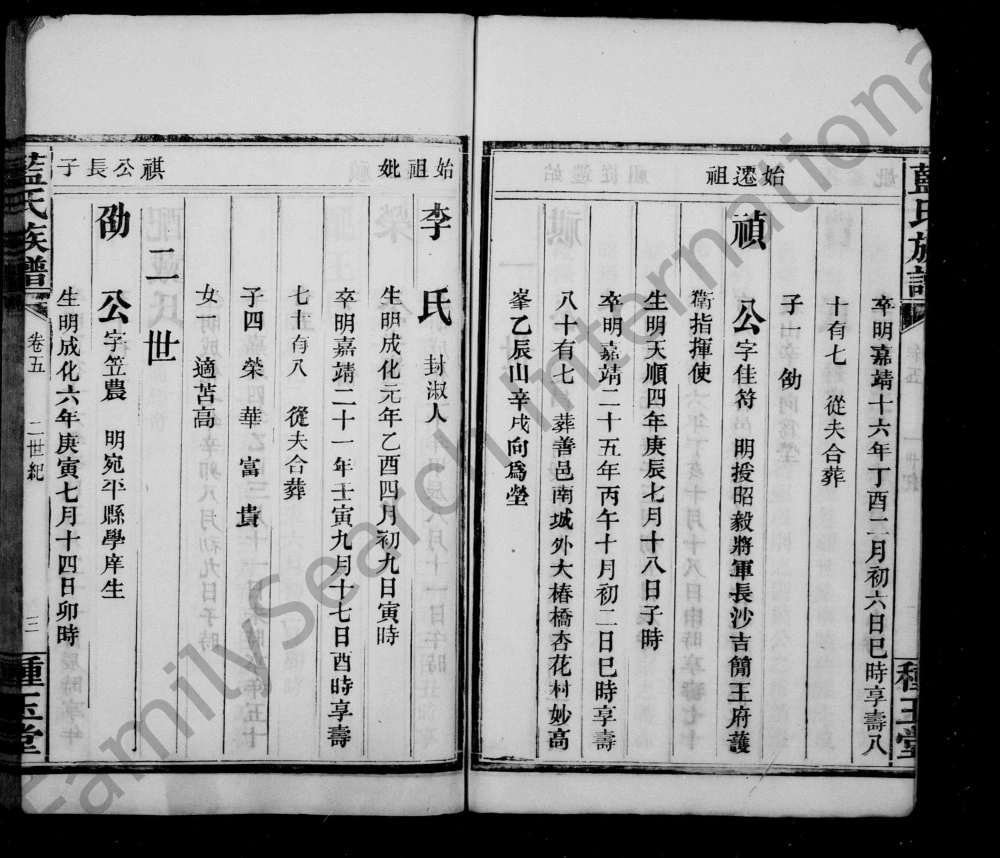 藍氏族譜
種玉堂
卒明嘉靖十六年丁酉二月初六日巳時享壽八
十有七 從夫合葬
子一劬
始遷祖
禎公字佳符 明授昭毅將軍長沙吉簡王府護
衛指揮使
生明天順四年庚辰七月十八日子時
卒明嘉靖二十五年丙午十月初二日巳時享壽
八十有七 葬善邑南城外大椿橋杏花村妙高
峯乙辰山辛戌向爲塋
始祖妣
李氏 封淑人
生明成化元年乙酉四月初九日寅時
卒明嘉靖二十一年壬寅九月十七日酉時享壽
七十有八 從夫合葬
子四 榮 華 富 貴
女一 適苦高
二世
祺公長子
劭公字笠農 明宛平縣學庠生
生明成化六年庚寅七月十四日卯時
藍氏族譜 卷五 二世紀 三 種玉堂
FamilySearch International